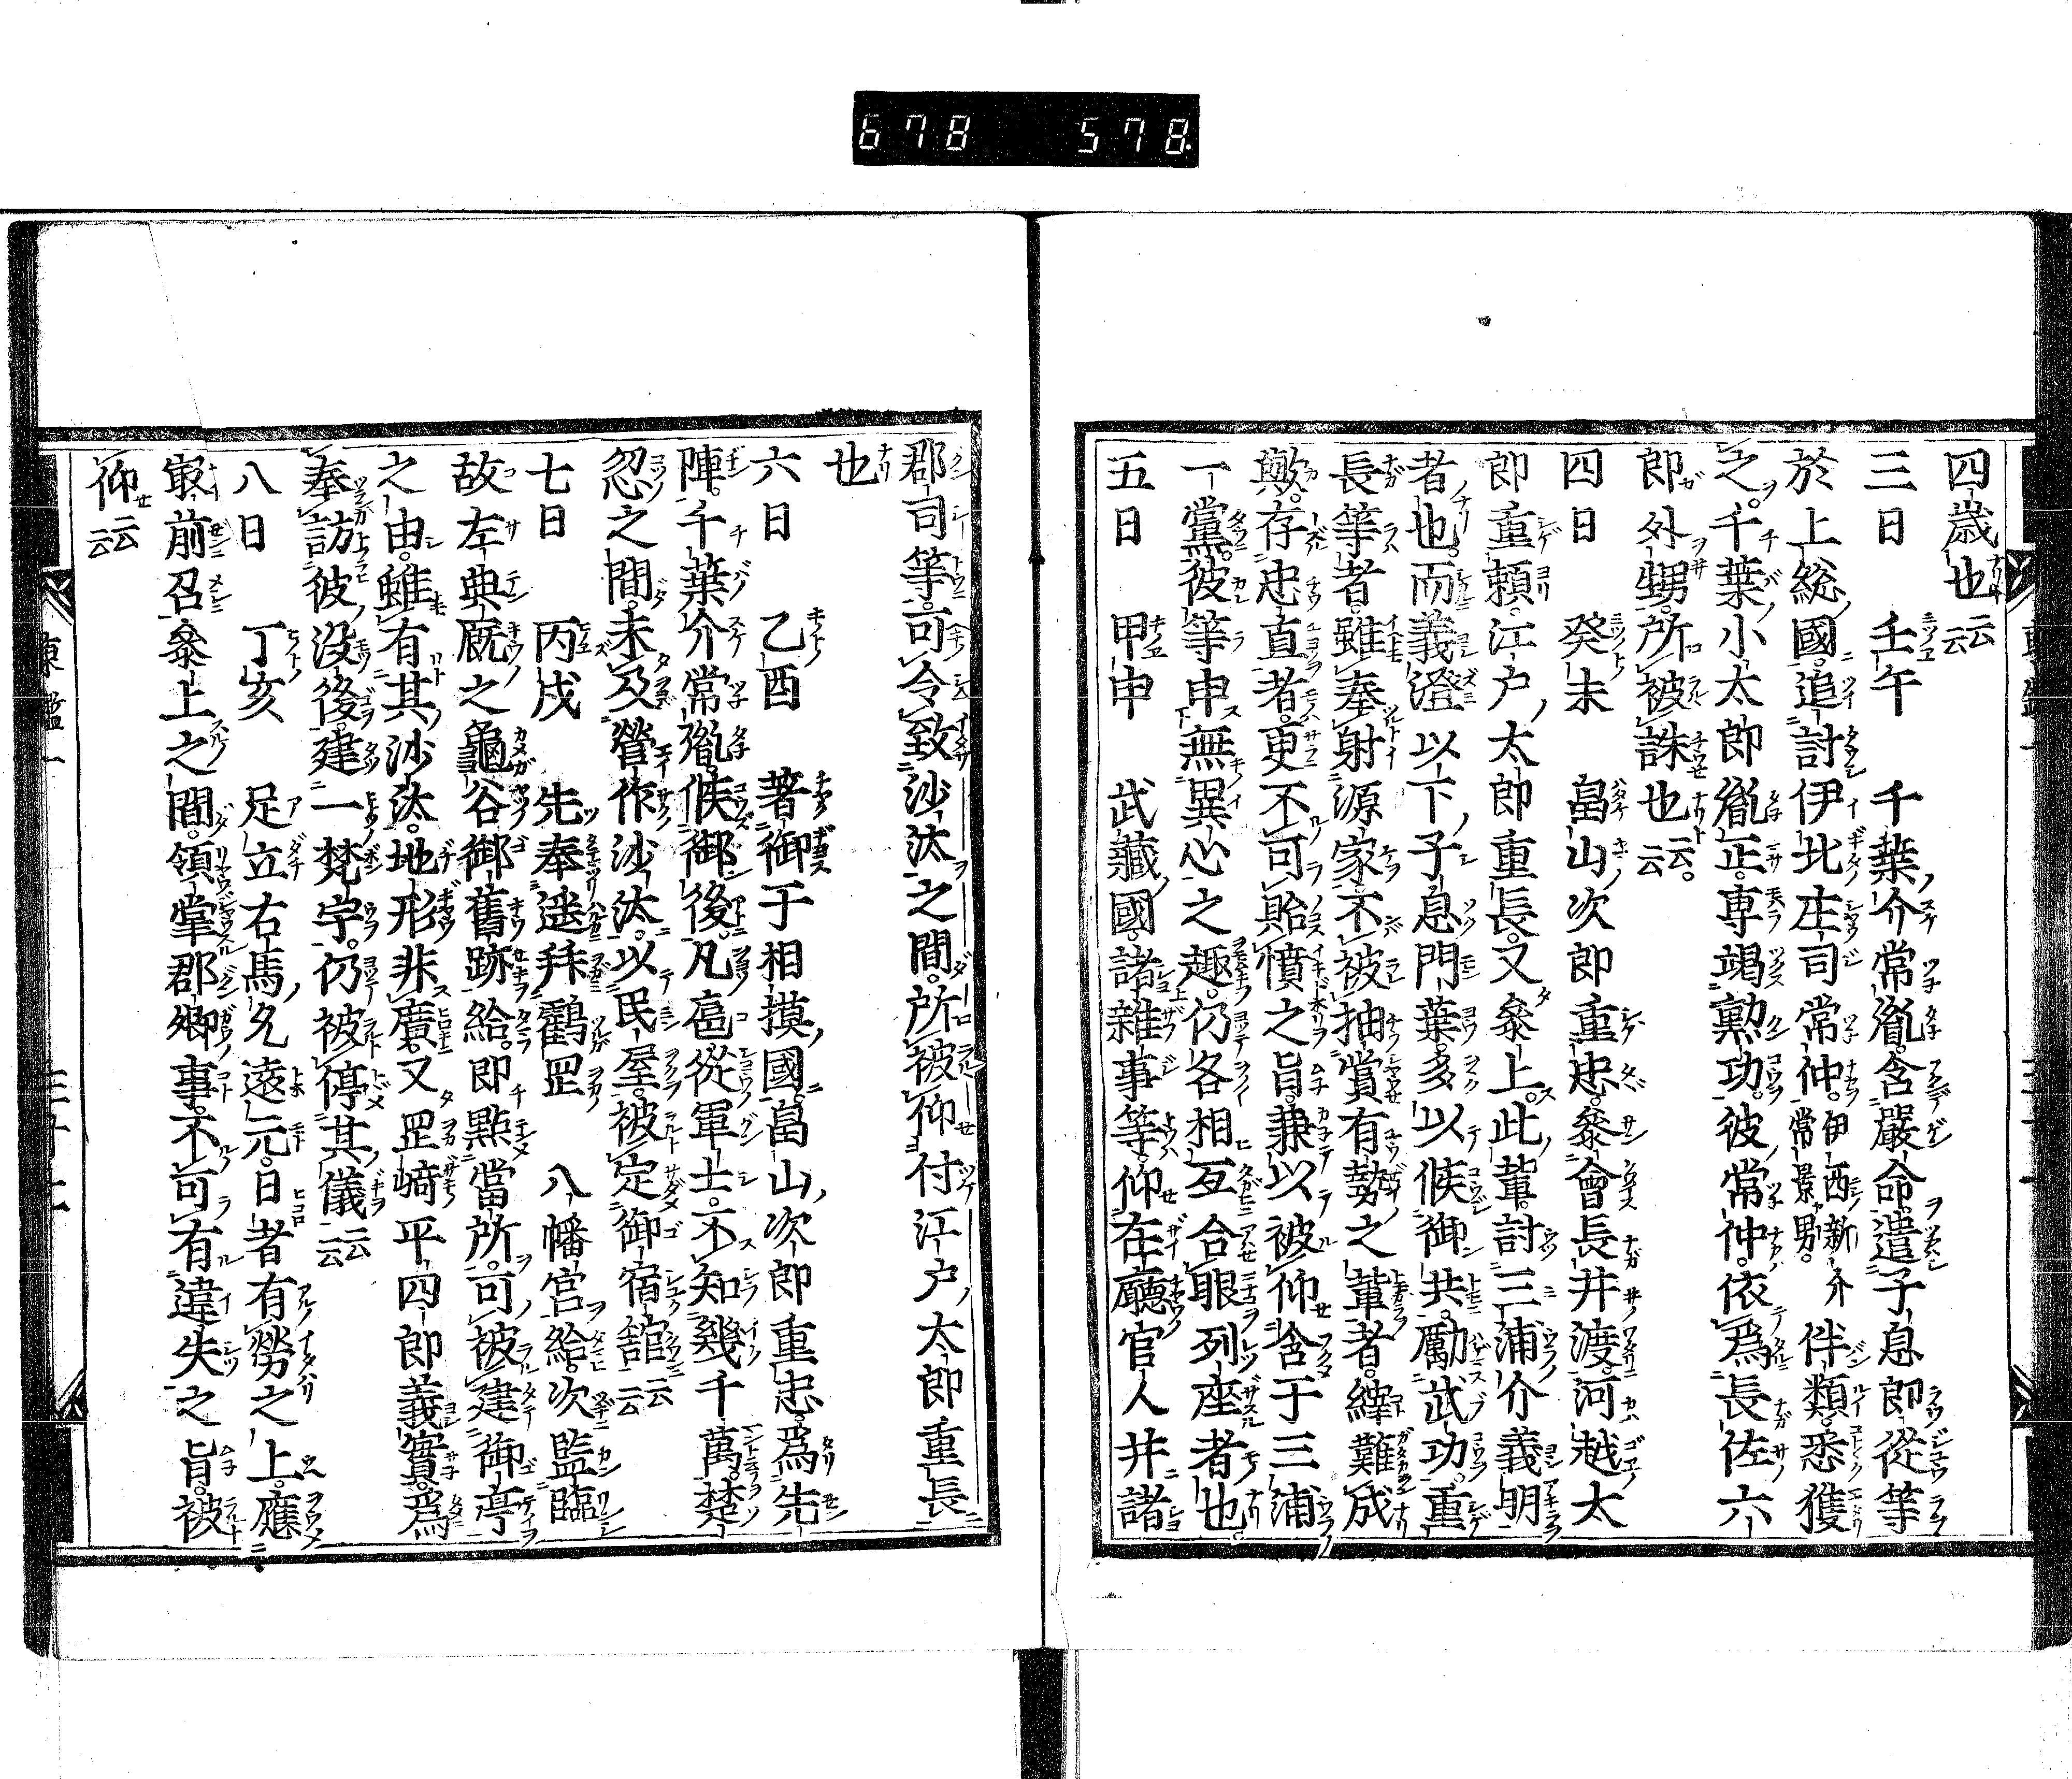 678 578.
四歳也云云
三日 壬午 千葉介常胤含嚴命遣子息郎從等
於上総國追討伊北庄司常仲伊西新介常景男伴類悉獲
之千葉小太郎胤正専竭勲功彼常仲依爲長佐六
郎外甥所被誅也云云
四日 癸未 畠山次郎重忠參會長井渡河越太
郎重頼江戸太郎重長又參上此輩討三浦介義明
者也而義澄以下子息門葉多以候御共勵武功重
長等者雖奉射源家不被抽賞有勢之輩者縡難成
歟存忠直者更不可貽憤之旨兼以被仰含于三浦
一黨彼等申無異心之趣仍各相互合眼列座者也
五日 甲申 武藏國諸雜事等仰在廳官人井諸
郡司等可令致沙汰之間所被仰付江戸太郎重長
也
六日 乙酉 著御于相摸國畠山次郎重忠爲先
陣千葉介常胤候御後凡扈從軍士不知幾千萬楚
忽之間未及營作沙汰以民屋被定御宿舘云云
七日 丙戌 先奉遥拜鸖罡 八幡宮給次監臨
故左典厩之龜谷御舊跡給即點當所可被建御亭
之由雖有其沙汰地形非廣又罡﨑平四郎義實爲
奉訪彼没後建一梵宇仍被停其儀云云
八日 丁亥 足立右馬允遠元日者有勞之上應
最前召參上之間領掌郡郷事不可有違失之旨被
仰云云